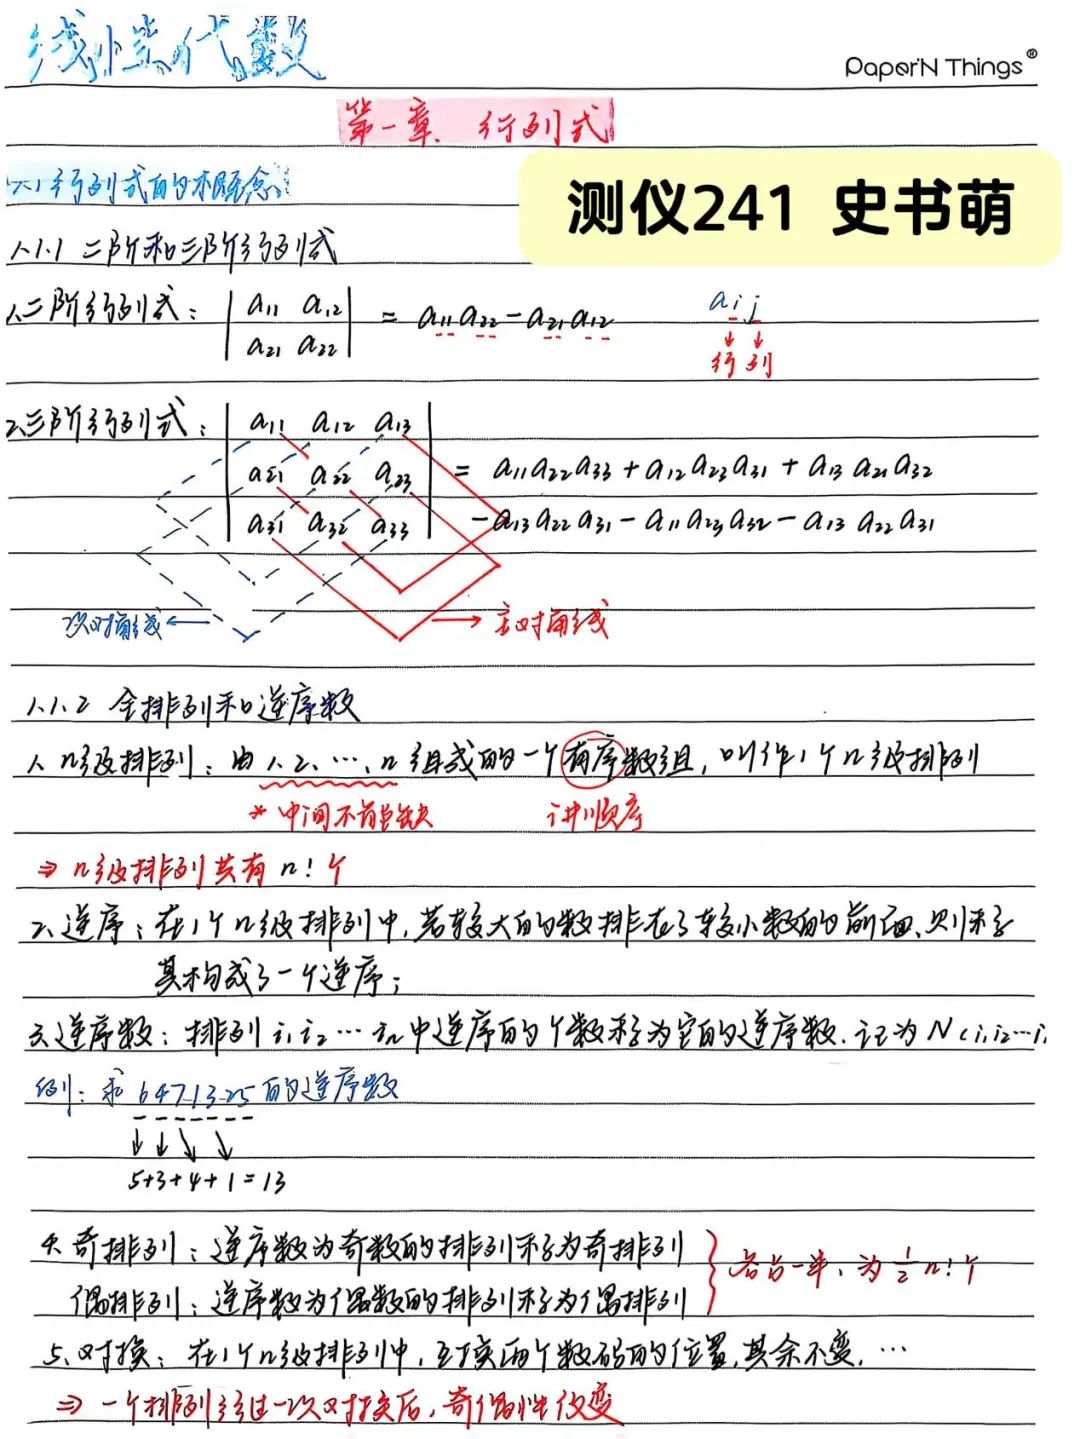 线性代数
PaperN Things®
第一章、行列式
1.1 行列式的概念
测仪241 史书萌
1.1.1 二阶和三阶行列式
1.二阶行列式：| a11 a12 | = a11a22-a21a12
| a21 a22 |
aij
↓ ↓
行 列
2.三阶行列式：| a11 a12 a13 |
| a21 a22 a23 | = a11a22a33+a12a23a31+a13a21a32
| a31 a32 a33 | -a13a22a31-a11a23a32-a13a22a31
次对角线← → 主对角线
1.1.2 全排列和逆序数
1. n级排列：由1、2、…、n组成的一个有序数组，叫作1个n级排列
*中间不能缺 讲顺序
⇒ n级排列共有n!个
2.逆序：在1个n级排列中，若较大的数排在了较小数的前面，则称
其构成了一个逆序；
3.逆序数：排列i1i2…in中逆序的个数称为它的逆序数.记为N(i1i2…i
例：求6471325的逆序数
↓↓↓↓
5+3+4+1=13
4.奇排列：逆序数为奇数的排列称为奇排列
偶排列：逆序数为偶数的排列称为偶排列
各占一半，为1/2 n!个
5.对换：在1个n级排列中，互换两个数码的位置，其余不变，…
⇒ 一个排列经过一次对换后，奇偶性改变